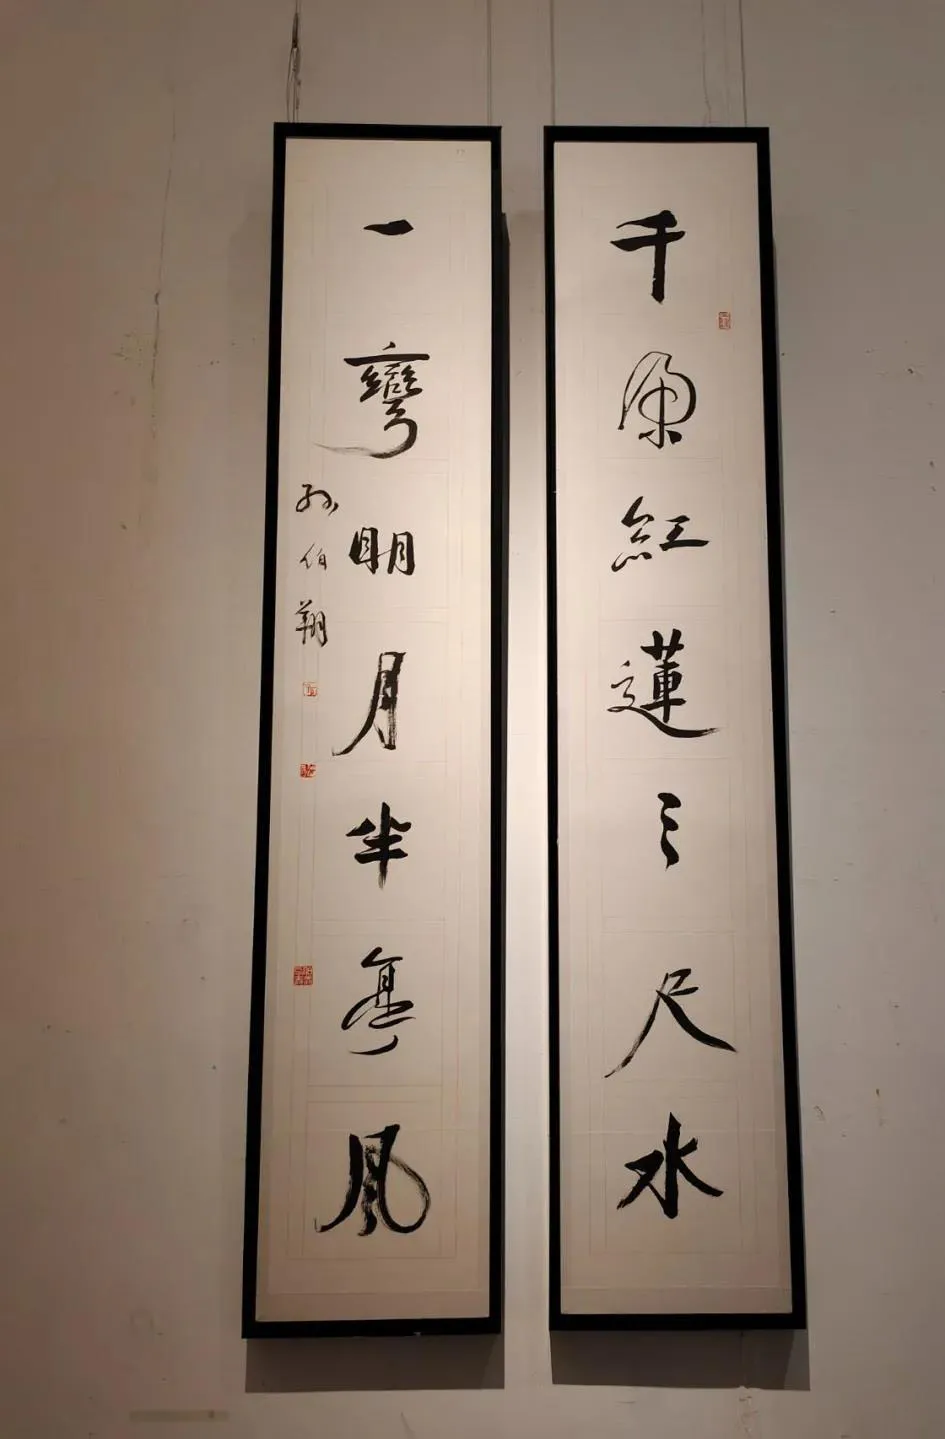 千朵紅蓮三尺水
一彎眀月半亭風
孫伯翔